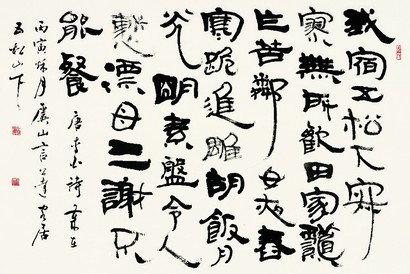 我宿五松下寂
寥無所歡田家龝
作苦鄰女夜舂
寒跪進雕胡飯月
光明素盤令人
慙漂母三謝不
能餐
唐李白詩
丙寅秋月虞山言恭達客居
五松山下